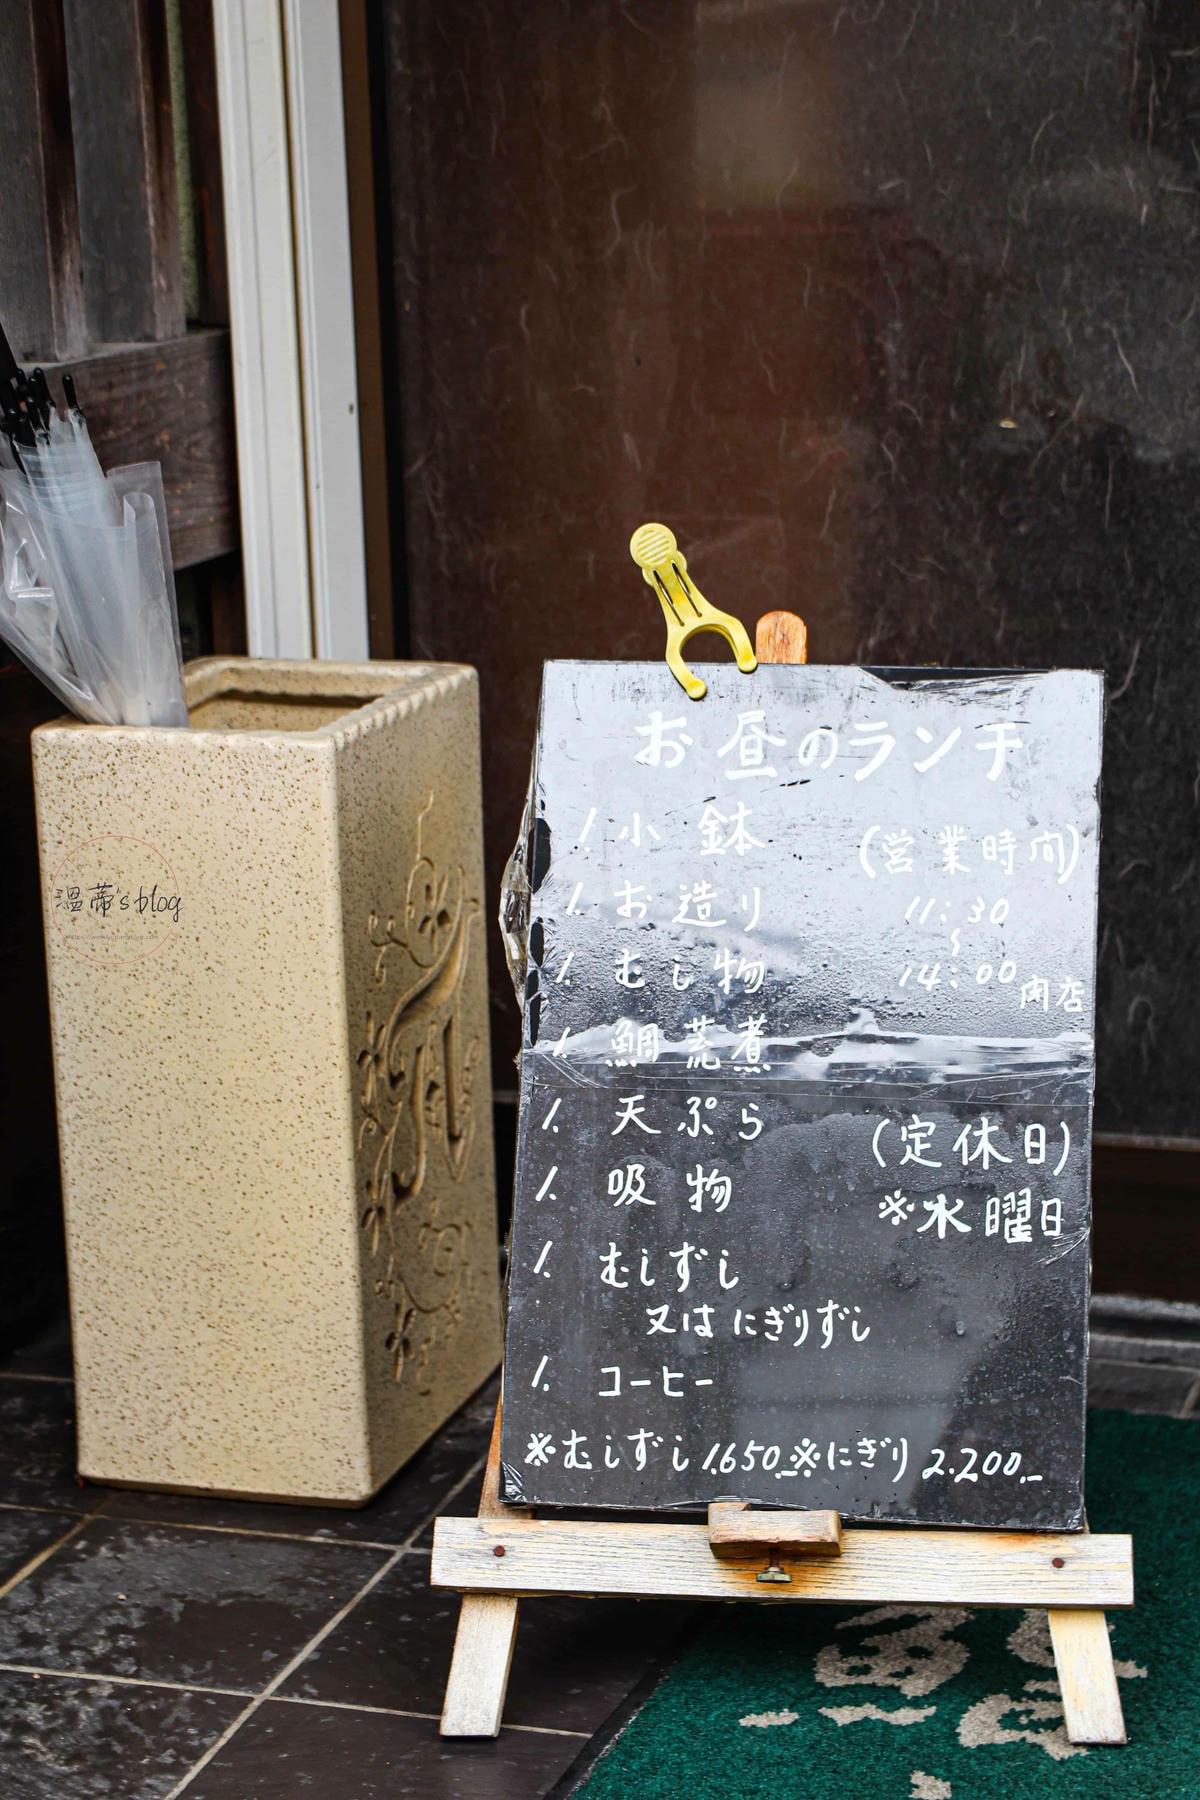 お昼のランチ
1. 小鉢
1. お造り
1. むし物
1. 鯛荒煮
1. 天ぷら
1. 吸物
1. むしずし
又は にぎりずし
1. コーヒー
(営業時間)
11:30
〜
14:00 閉店
(定休日)
※水曜日
※むしずし 1.650.- ※にぎり 2.200.-
溫蒂's blog